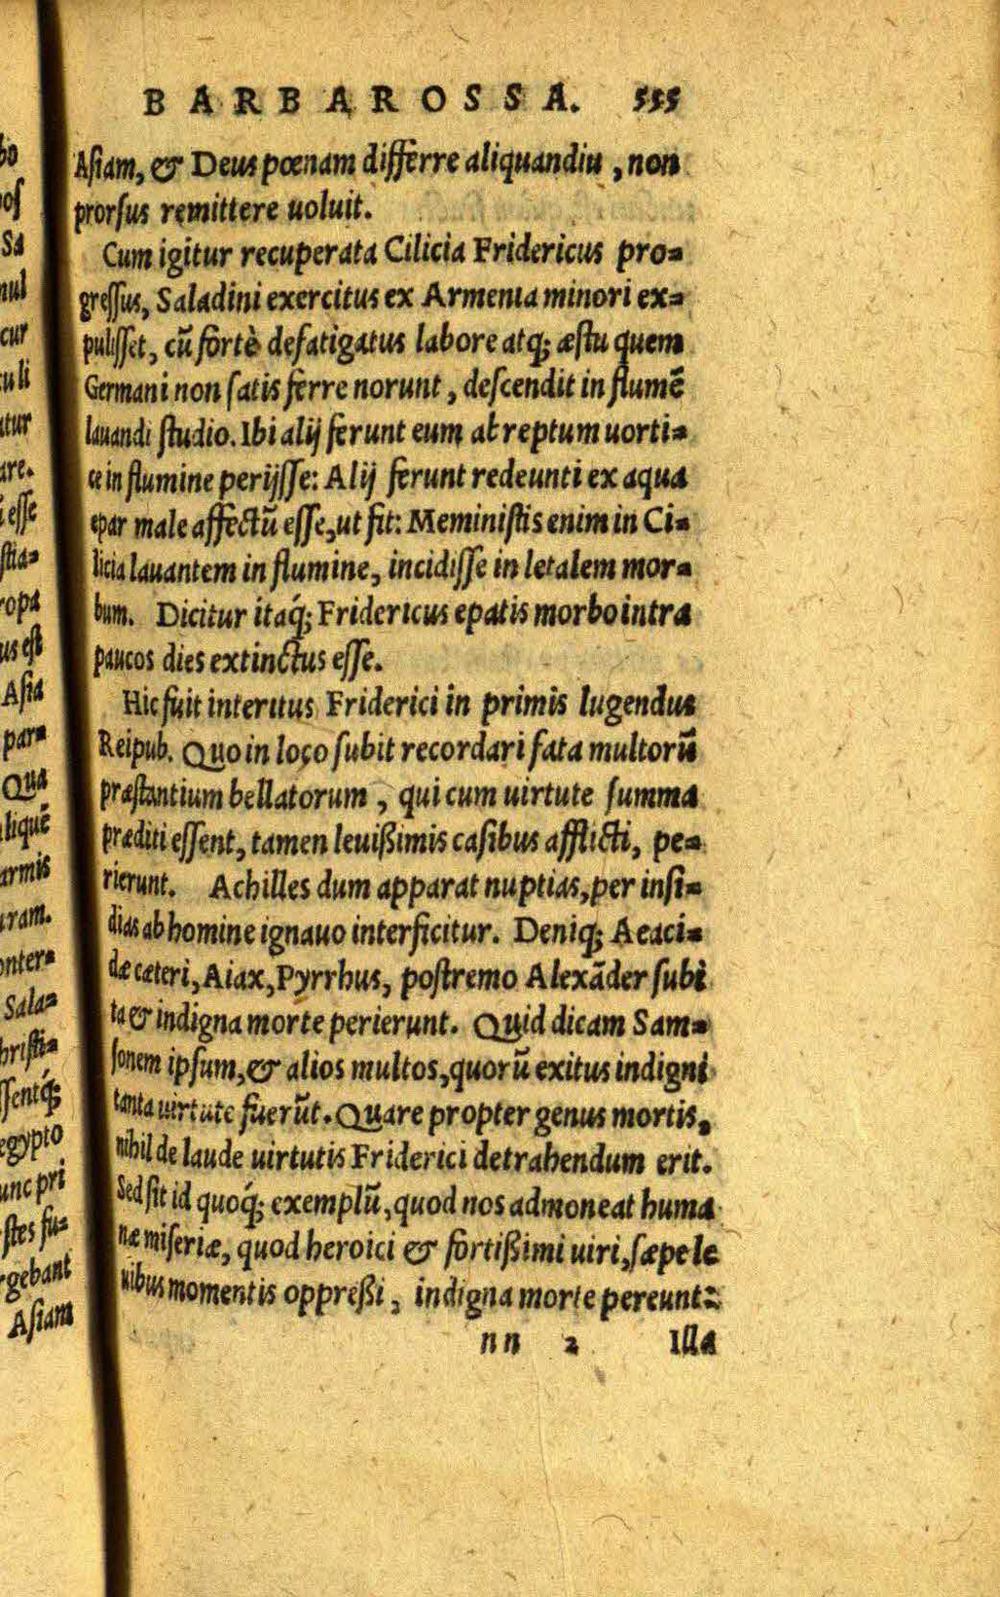 BARBAROSSA. 555
Asiam, & Deus pœnam differre aliquandiu, non
prorsus remittere uoluit.
Cum igitur recuperata Cilicia Fridericus pro-
gressus, Saladini exercitus ex Armenia minori ex-
pulisset, cũ fortè defatigatus labore atq; æstu quem
Germani non satis ferre norunt, descendit in flumẽ
lauandi studio. Ibi alij ferunt eum abreptum uorti-
ce in flumine perijsse: Alij ferunt redeunti ex aqua
epar male affectũ esse, ut fit: Meministis enim in Ci-
licia lauantem in flumine, incidisse in letalem mor-
bum. Dicitur itaq́; Fridericus epatis morbo intra
paucos dies extinctus esse.
Hic fuit interitus Friderici in primis lugendus
Reipub. Quo in loco subit recordari fata multorũ
præstantium bellatorum, qui cum uirtute summa
præditi essent, tamen leuißimis casibus afflicti, pe-
rierunt. Achilles dum apparat nuptias, per insi-
dias ab homine ignauo interficitur. Deniq; Aeaci-
dæ cæteri, Aiax, Pyrrhus, postremo Alexãder subi
ta & indigna morte perierunt. Quid dicam Sam-
sonem ipsum, & alios multos, quorũ exitus indigni
tanta uirtute fuerũt. Quare propter genus mortis,
nihil de laude uirtutis Friderici detrahendum erit.
Sed sit id quoq́; exemplũ, quod nos admoneat huma
næ miseriæ, quod heroici & fortißimi uiri, sæpe le
uibus momentis oppreßi, indigna morte pereunt:
nn 2 Illa